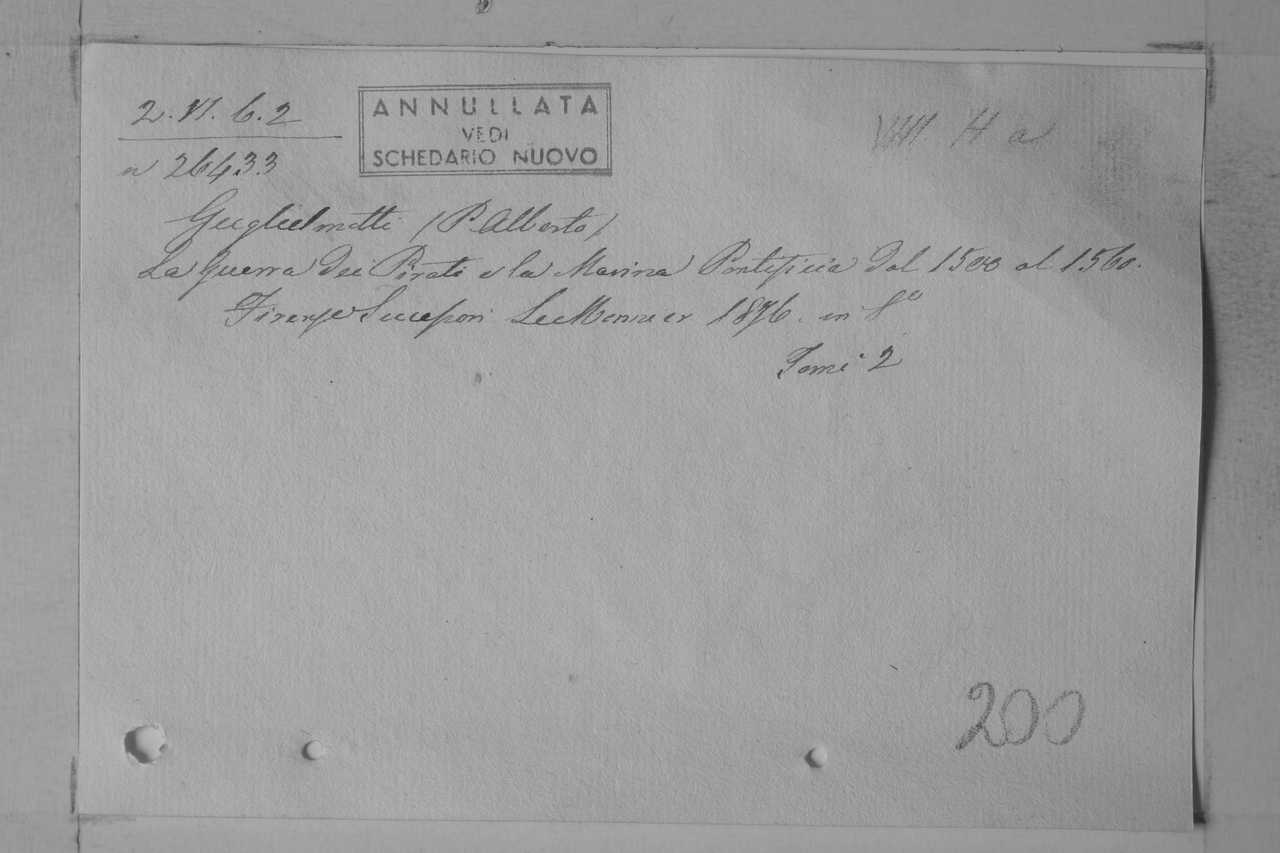 2. VI. 6. 2
n 26433
ANNULLATA
VEDI
SCHEDARIO NUOVO
VIII H a
Guglielmotti (P. Alberto)
La Guerra dei Pirati e la Marina Pontificia dal 1500 al 1560.
Firenze Successori Le Monnier 1876. in 8º
Tomi 2
200